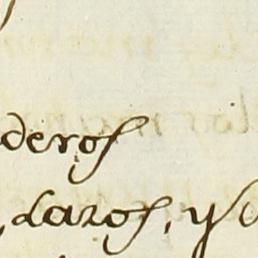 deros
, Lazos, y